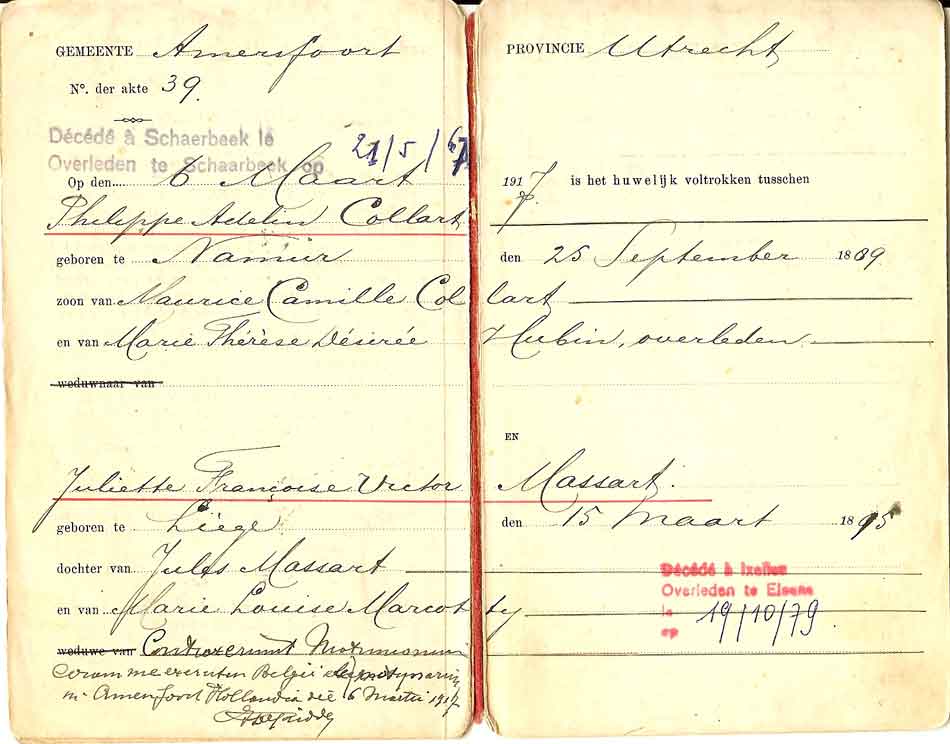 GEMEENTE Amersfoort
N°. der akte 39.
Décédé à Schaerbeek le
Overleden te Schaarbeek op 21/5/67
Op den 6 Maart
Philippe Adelin Collart
geboren te Namur
zoon van Maurice Camille Col
en van Marie Thérèse Désirée
weduwnaar van
Juliette Françoise Victor
geboren te Liège
dochter van Jules Massart
en van Marie Louise Marcot
weduwe van Contraxerunt Matrimonium
Coram me
in Amersfoort Hollandia die 6 Martii 1917
PROVINCIE Utrecht
1917 is het huwelijk voltrokken tusschen
den 25 September 1889
lart
Hubin, overleden
EN
Massart.
den 15 Maart 1895
Décédé à Ixelles
Overleden te Elsene
le
op 19/10/79
ty